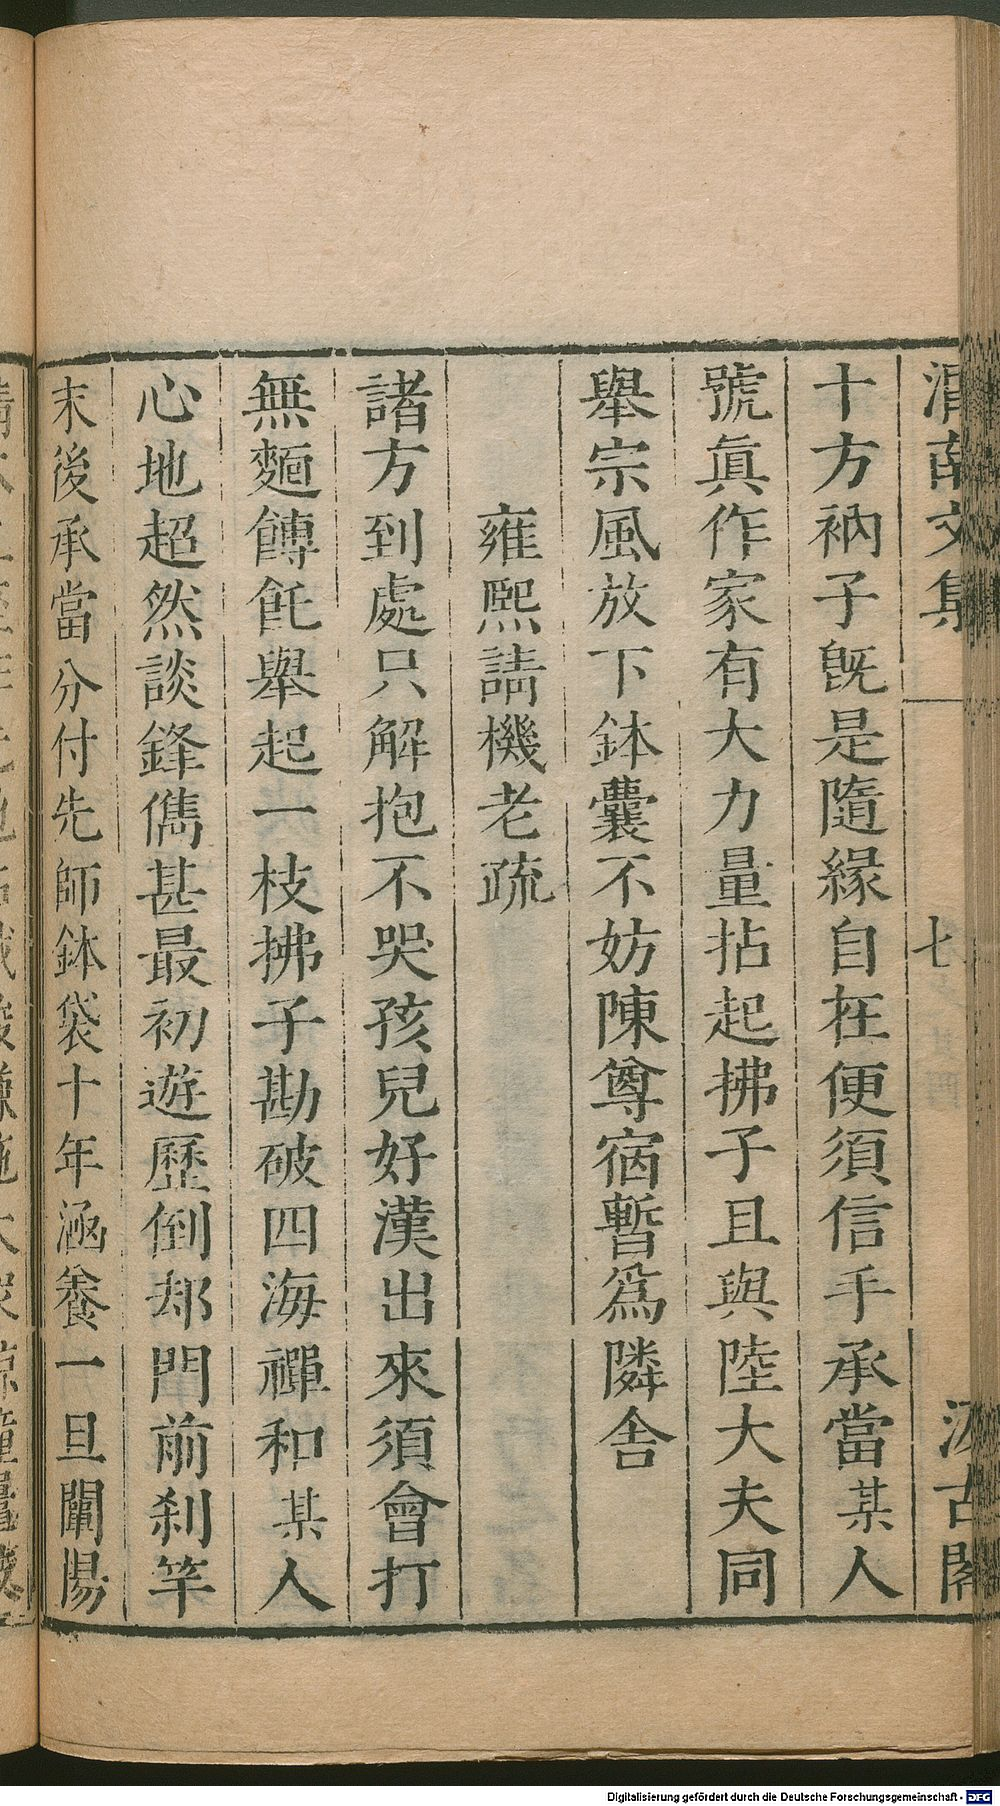 渭南文集 七 汲古閣
十方衲子旣是隨緣自在便須信手承當某人
號眞作家有大力量拈起拂子且與陸大夫同
舉宗風放下鉢囊不妨陳尊宿暫爲隣舍
雍熙請機老疏
諸方到處只解抱不哭孩兒好漢出來須會打
無麵餺飥舉起一枝拂子勘破四海禪和某人
心地超然談鋒儁甚最初遊歷倒却門前刹竿
末後承當分付先師鉢袋十年涵養一旦闡揚
Digitalisierung gefördert durch die Deutsche Forschungsgemeinschaft - DFG